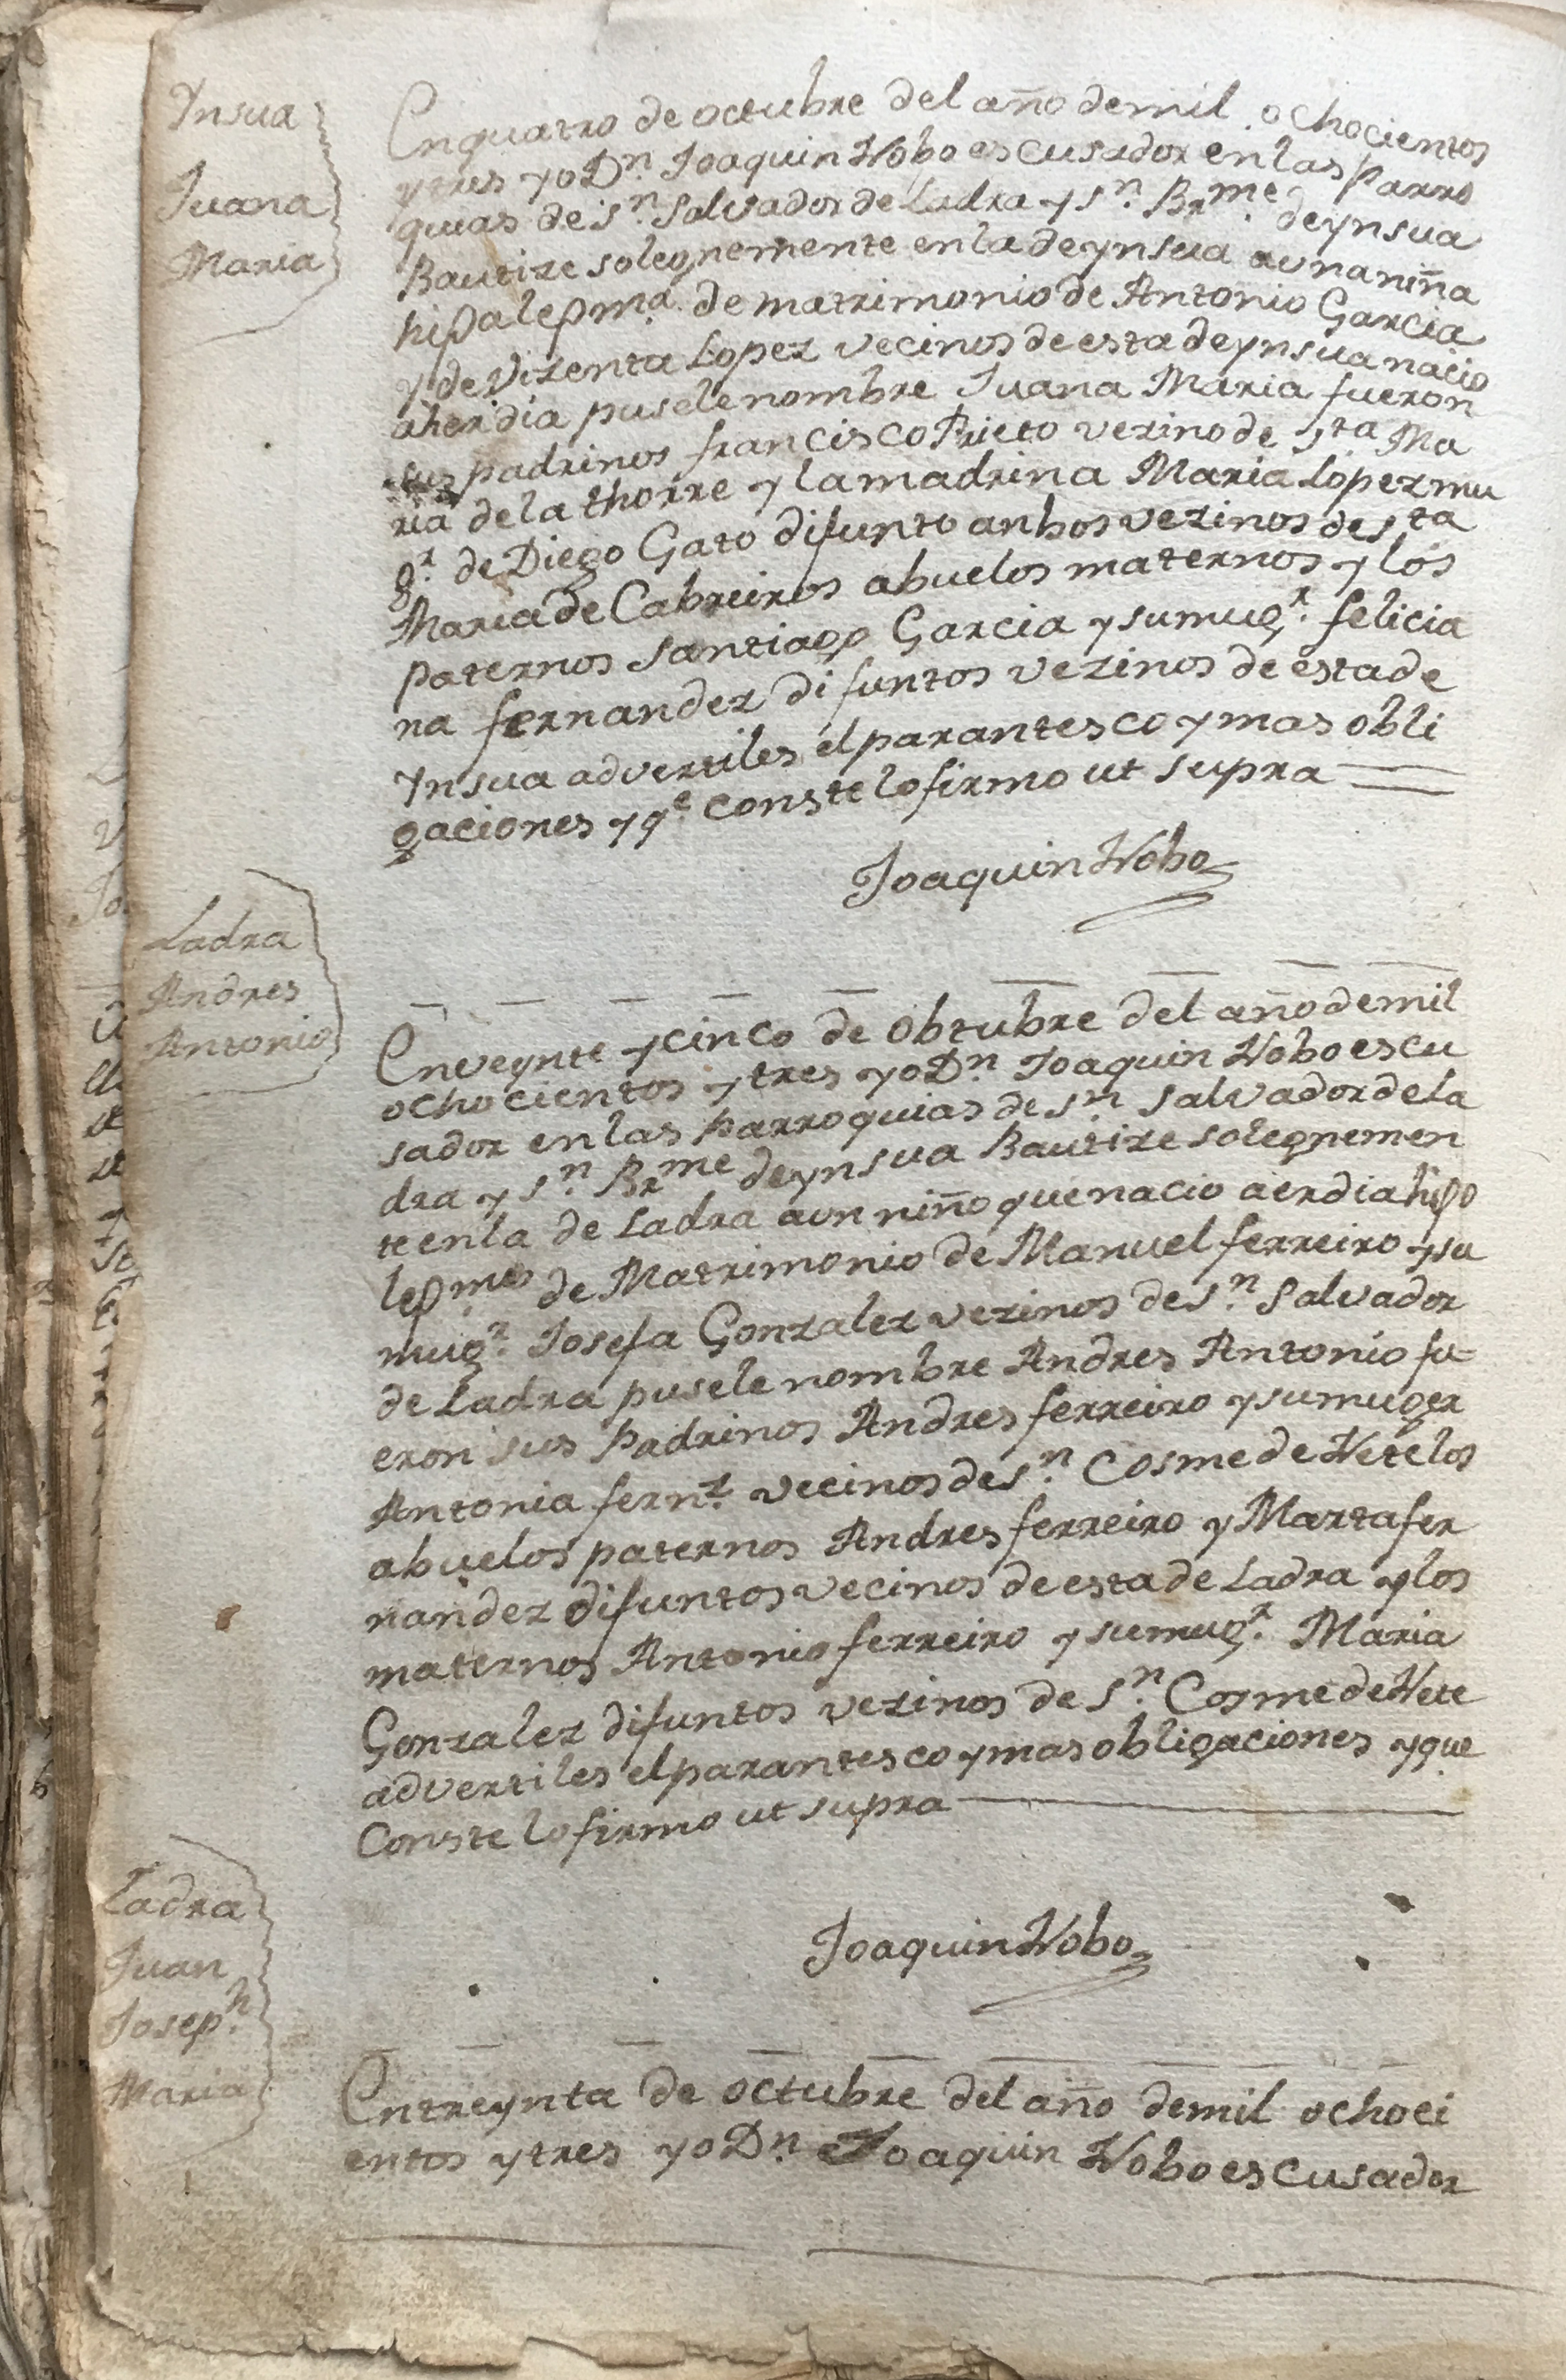 Ynsua
Juana
Maria
En quatro de octubre del año de mil ochocientos
y tres yo Dn. Joaquin Nobo escusador en las parro
quias de Sn. Salvador de Ladra y Sn. Brme. de ynsua
Bautize solegnemente en la de ynsua a una niña
hija lejma. de matrimonio de Antonio Garcia
y de Vizenta Lopez vecinos de esta de ynsua nacio
aher dia pusele nombre Juana Maria fueron
sus padrinos francisco Prieto vezino de Sta Ma
ria de la thorre y la madrina Maria Lopez mu
gr. de Diego Gato difunto anbos vezinos de Sta
Maria de Cabreiros abuelos maternos y los
paternos Santiago Garcia y su mugr. felicia
na fernandez difuntos vezinos de esta de
Ynsua advertiles el parantesco y mas obli
gaciones y qe conste lo firmo ut supra
Joaquin Nobo
Ladra
Andres
Antonio
En veynte y cinco de obtubre del año de mil
ochocientos y tres yo Dn. Joaquin Nobo escu
sador en las parroquias de Sn. Salvador de la
dra y Sn. Brme de ynsua Bautize solegnemen
te en la de Ladra a un niño que nacio aer dia hijo
lejmo de Matrimonio de Manuel ferreiro y su
mugr. Josefa Gonzalez vezinos de Sn. Salvador
de Ladra pusele nombre Andres Antonio fu=
eron sus Padrinos Andres ferreiro y su muger
Antonia fernz. vecinos de Sn. Cosme de Nete los
abuelos paternos Andres ferreiro y Marta fer
nandez difuntos vecinos de esta de Ladra y los
maternos Antonio ferreiro y su mugr. Maria
Gonzalez difuntos vezinos de Sn. Cosme de Nete
advertiles el parantesco y mas obligaciones y que
Conste lo firmo ut supra
Joaquin Nobo
Ladra
Juan
Joseph.
Maria
En treynta de octubre del año de mil ochoci
entos y tres yo Dn. Joaquin Nobo escusador